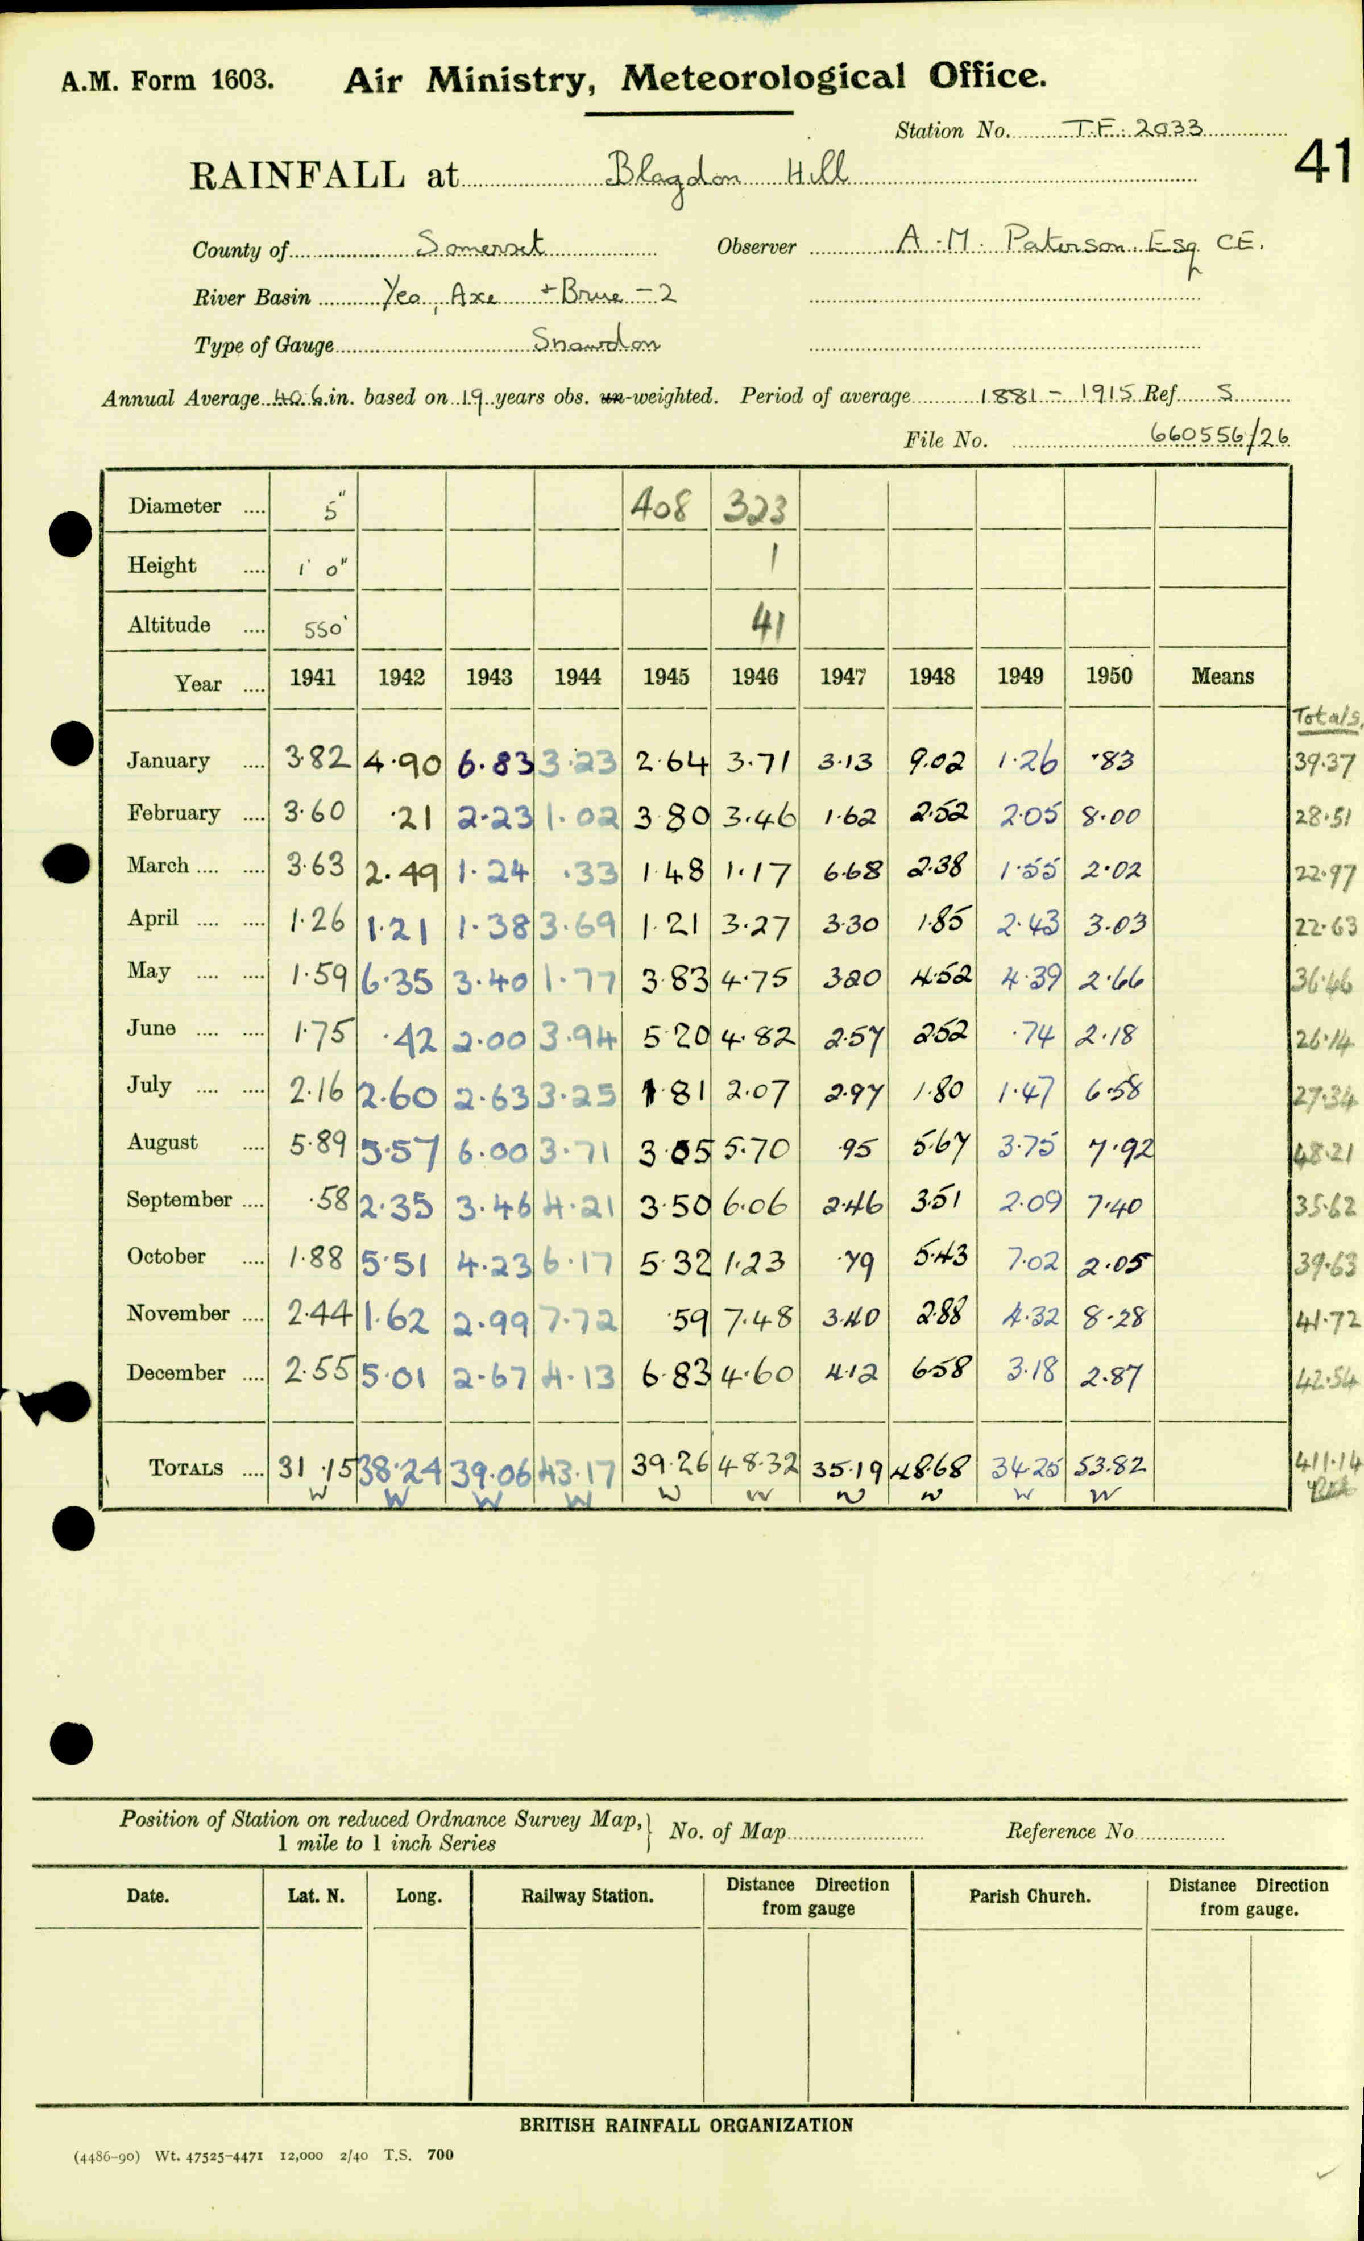 A.M. Form 1603. Air Ministry, Meteorological Office.
Station No. T.F. 2033
41
RAINFALL at Blagdon Hill
County of Somerset Observer A. M. Paterson. Esq CE.
River Basin Yeo, Axe + Brue - 2
Type of Gauge Snowdon
Annual Average 40.6 in. based on 19 years obs. un-weighted. Period of average 1881 - 1915 Ref. S
File No. 660556/26
Diameter .... 5" 408 323
Height .... 1' 0" 1
Altitude .... 550' 41
Year .... 1941 1942 1943 1944 1945 1946 1947 1948 1949 1950 Means
Totals.
January .... 3.82 4.90 6.83 3.23 2.64 3.71 3.13 9.02 1.26 .83 39.37
February .... 3.60 .21 2.23 1.02 3.80 3.46 1.62 2.52 2.05 8.00 28.51
March .... .... 3.63 2.49 1.24 .33 1.48 1.17 6.68 2.38 1.55 2.02 22.97
April .... .... 1.26 1.21 1.38 3.69 1.21 3.27 3.30 1.85 2.43 3.03 22.63
May .... .... 1.59 6.35 3.40 1.77 3.83 4.75 3.20 4.52 4.39 2.66 36.46
June .... .... 1.75 .42 2.00 3.94 5.20 4.82 2.57 2.52 .74 2.18 26.14
July .... .... 2.16 2.60 2.63 3.25 1.81 2.07 2.97 1.80 1.47 6.58 27.34
August .... 5.89 5.57 6.00 3.71 3.05 5.70 .95 5.67 3.75 7.92 48.21
September .... .58 2.35 3.46 4.21 3.50 6.06 2.46 3.51 2.09 7.40 35.62
October .... 1.88 5.51 4.23 6.17 5.32 1.23 .79 5.43 7.02 2.05 39.63
November .... 2.44 1.62 2.99 7.72 .59 7.48 3.40 2.88 4.32 8.28 41.72
December .... 2.55 5.01 2.67 4.13 6.83 4.60 4.12 6.58 3.18 2.87 42.54
TOTALS .... 31.15 38.24 39.06 43.17 39.26 48.32 35.19 48.68 34.25 53.82 411.14
W W W W W W W W W W
Position of Station on reduced Ordnance Survey Map, } No. of Map Reference No
1 mile to 1 inch Series
Date. Lat. N. Long. Railway Station. Distance Direction from gauge Parish Church. Distance Direction from gauge.
BRITISH RAINFALL ORGANIZATION
(4486-90) Wt. 47525-4471 12,000 2/40 T.S. 700